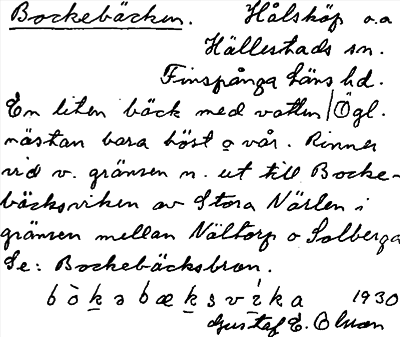 Bockebäcken. Hålsköp o.a
Hällestads sn.
Finspånga läns hd.
En liten bäck med vatten / Ögl.
nästan bara höst o vår. Rinner
vid v. gränsen n. ut till Bocke-
bäcksviken av Stora Närlen i
gränsen mellan Nältorp o Solberga
Se: Bockebäcksbron.
bòkəbæksvíka 1930
Gustaf E. Olsson